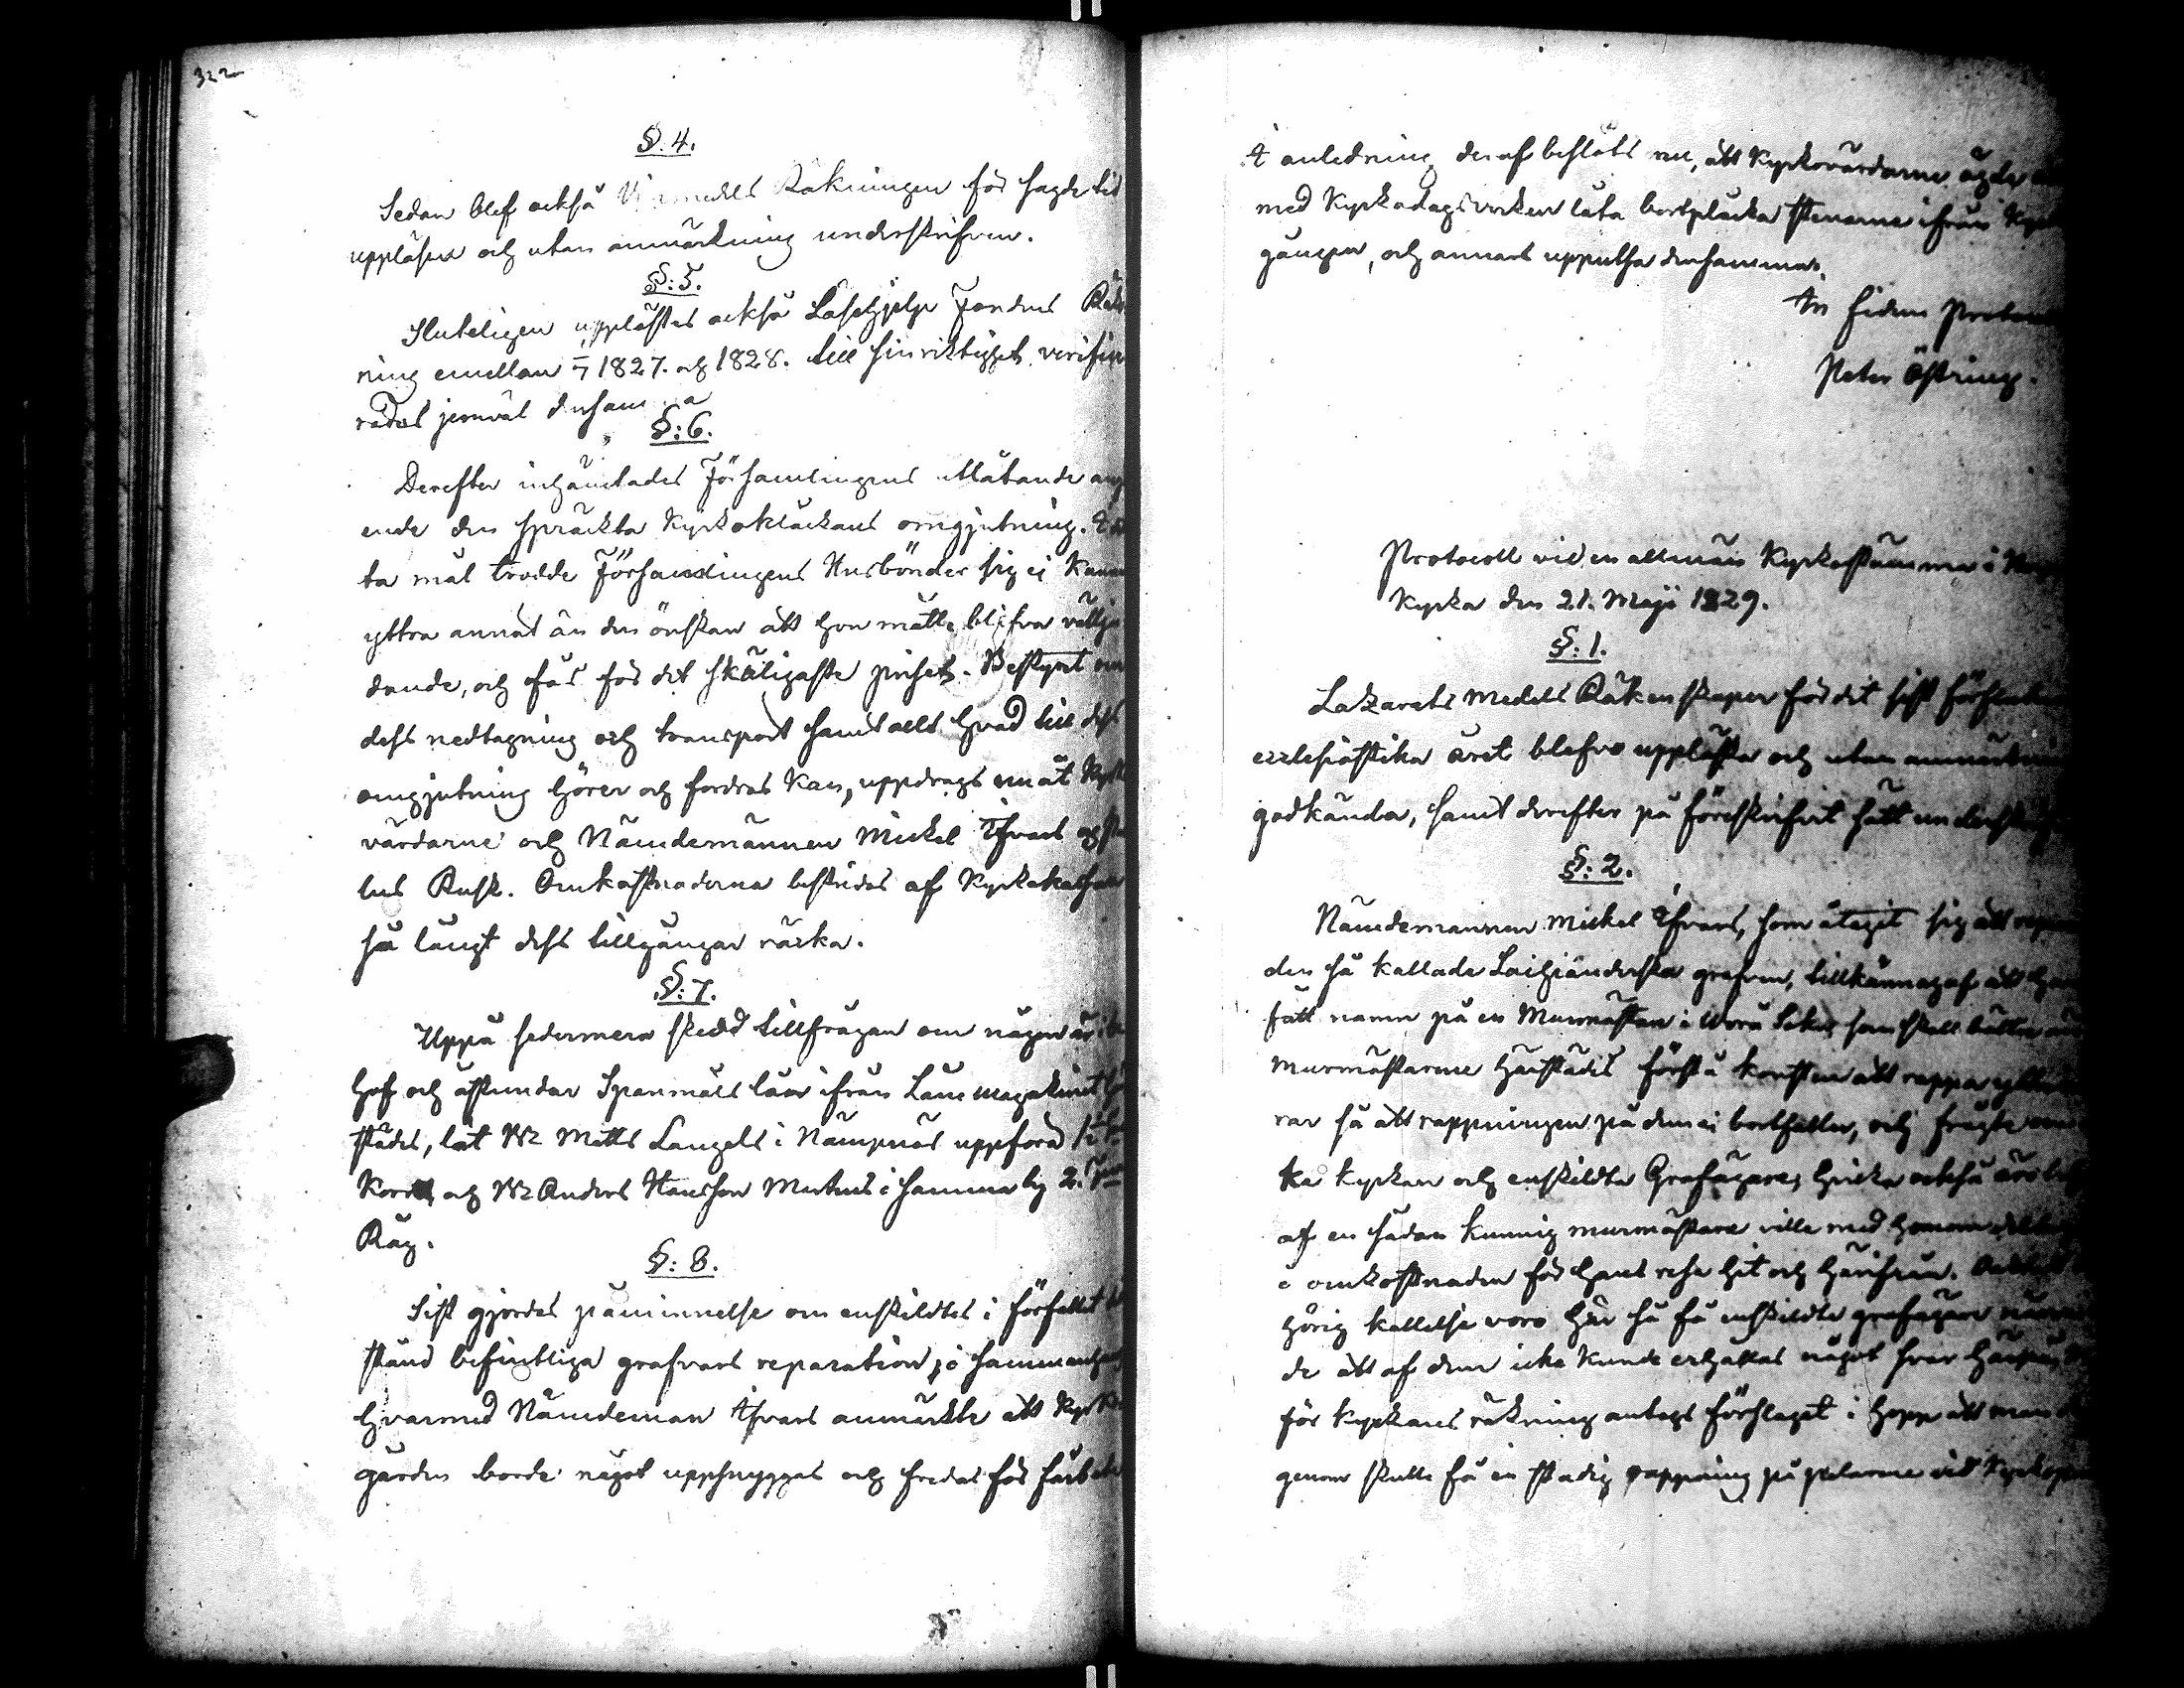 322
§. 4.
Sedan blef också Räkningen för sagde tid
uppläsen och utan anmärkning underskrifven.
§: 5.
Sluteligen upplästes också Fondens Räk
ning emellan 1827. och 1828. till sin riktighet verifice
rades jemväl densamma
§: 6.
Derefter inhämtades Församlingens utlåtande ang
ende den spräckta Kyrkoklåckans omgjutning. I det
ta mål trodde Församlingens Husbönder sig ej kunna
yttra annat än den önskan att hon måtte blifva vällju
dande, och fås för det skäligaste priset. Bestyret om
dess nedtagning och transport samt allt hvad till dess
omgjutning hörer och fordras kan, uppdrogs nu åt Kyrko
värdarne och Nämdemännen Mickel Ifvars och
lus Rusk. Omkostnaderna bestridas af Kyrkokassan
så långt dess tillgångar räcka.
§: 7.
Uppå sedermera skedd tillfrågan om någon är i be
hof och åstundar Spanmåls lån ifrån Lane magazinet här
städes, lät Matts Langels i Nämpnäs uppföra
Korn och Anders Hansson Mutus i samma by 2.
Råg.
§: 8.
Sist gjordes påminnelse om enskildtes i förfallet till
stånd befintliga grafvars reparation, i sammanhang
hvarmed Nämdeman Ifvars anmärkte att Kyrko
gården borde något uppsnyggas och fredas för
I anledning deraf beslöts nu, att Kyrkovärdarne ägde
med Kyrkodagsverken låta bortplåcka stenarne ifrån Kyrko
gången, och annars upputsa densamma.
In fidem Protocolli
Peter Östring.
Protocoll vid en allmän Kyrkostämma i
Kyrka den 21. Maji 1829.
§: 1.
Lazarets Medels Räkenskaper för det sist förflutna
ecclesiastika året blefvo upplästa och utan anmärkning
godkända, samt derefter på föreskrifvit sätt underskrifne
§: 2.
Nämdemannen Mickel Ifvars, som åtagit sig att
den så kallade grafven, tillkännagaf att han
fått namn på en Murmästare i Wörå Soken som skall bättre än
Murmästarne härstädes förstå konsten att rappa
rar så att rappningen på dem ei bortfaller, och frågte om
ka kyrkan och enskildta Grafägare, hvilka också äro
af en sådan kunnig murmästare ville med honom
i omkostnaden för hans resa hit och härifrån.
hörig kallelse voro här så få enskildte grafägare
de att af dem icke kunde erhållas något svar härpå,
för kyrkans räkning antogs förslaget i hopp att man
genom skulle få en stadig rappning på pelarne vid